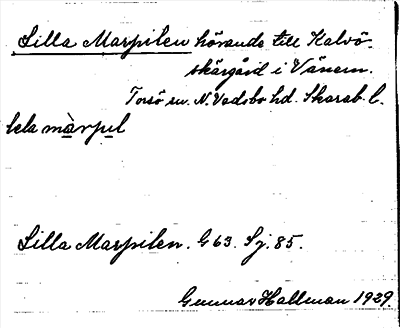 Lilla Marpilen hörande till Kalvö-
skärgård i Vänern.
Torsö sn. N. Vadsbo hd. Skarab. l.
lela màrpul
Lilla Marpilen. G 63. Sj. 85.
Gunnar Hallman 1929.